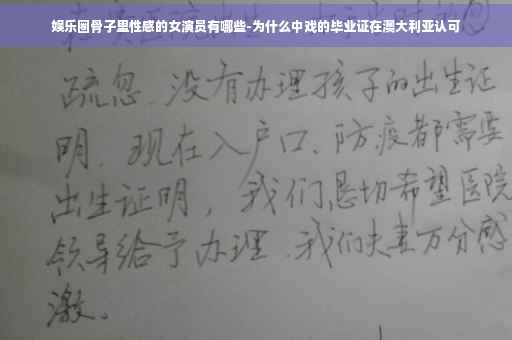 娱乐圈骨子里性感的女演员有哪些-为什么中戏的毕业证在澳大利亚认可
疏忽、没有办理孩子的出生证
明、现在入户口、防疫都需要
出生证明，我们恳切希望医院
领导给予办理、我们夫妻万分感
激。